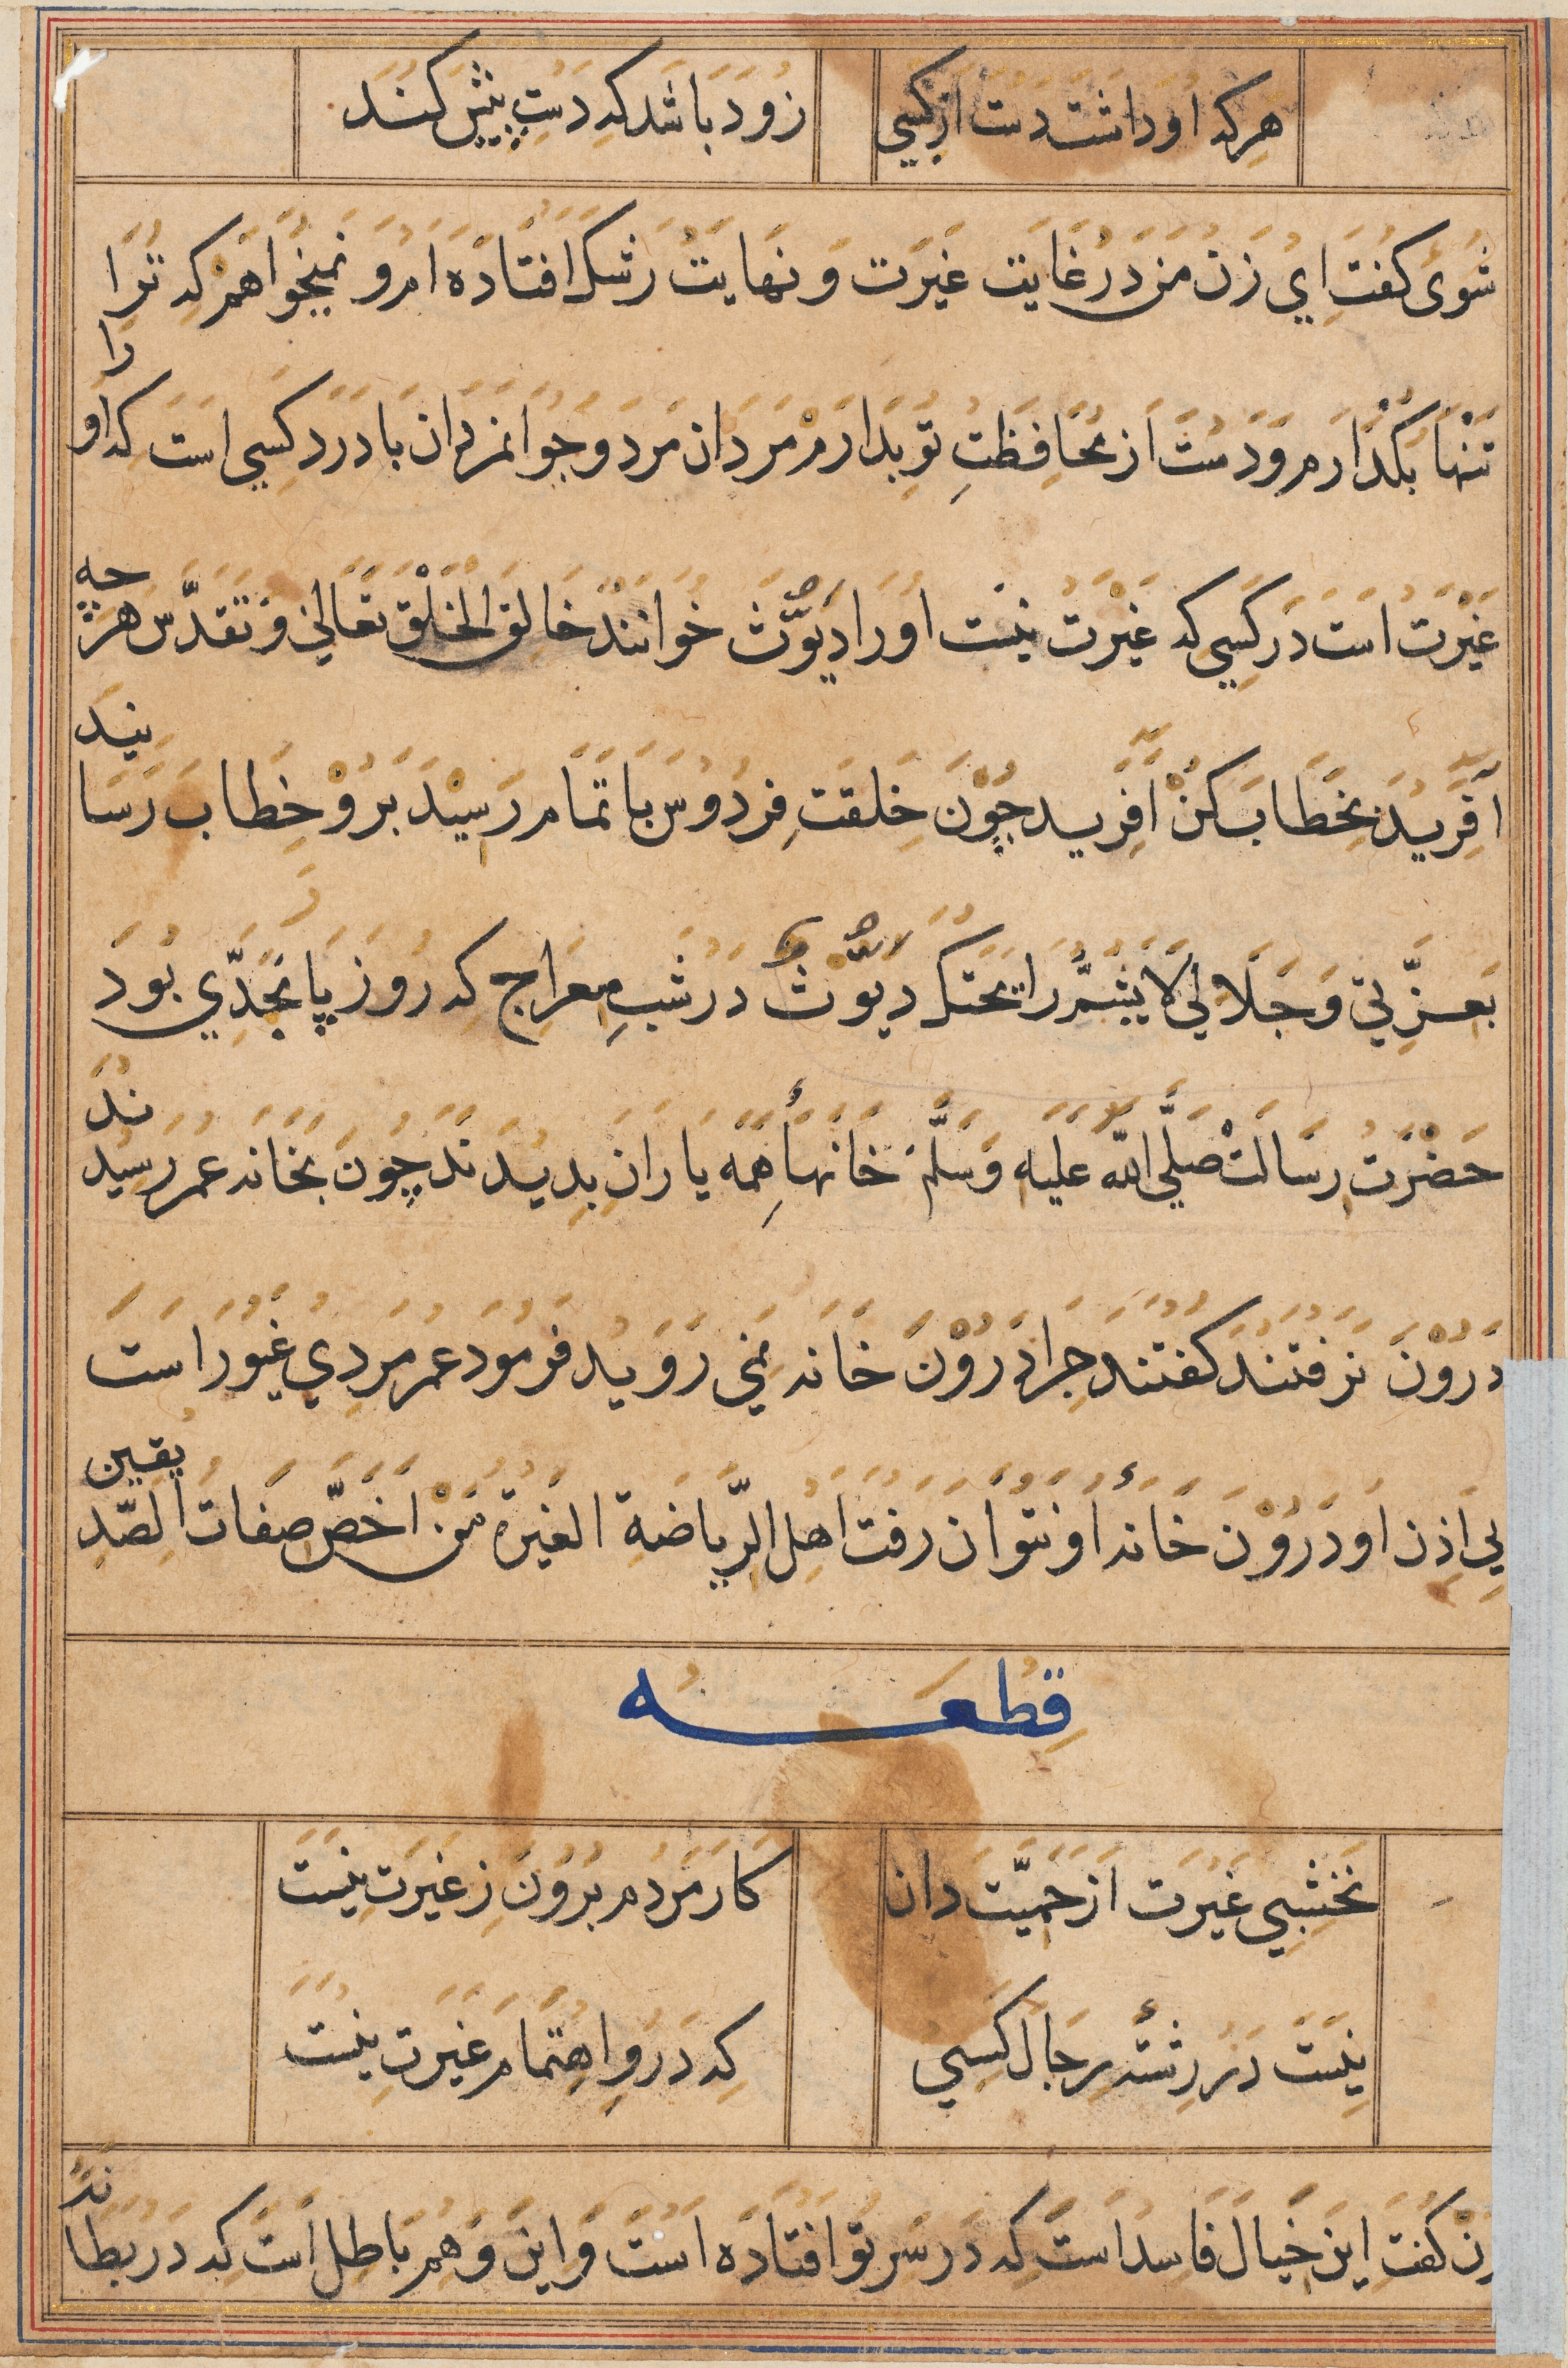 هر که او داشت دست از کسی
زود باشد که دست پیش کند
شوی کفت ای زن من در غایت غیرت و نهایت رشک افتاده ام و نمیخواهم که ترا
تنها بکذارم و دست از محافظت تو بدارم مردان مرد و جوانمردان با درد کسی است که او را
غیرت است در کسی که غیرت نیست او را دیّوث خوانند خالق الخلق تعالی و تقدّس هر چه
آفرید بخطاب کن آفرید چون خلقت فردوس باتمام رسید برو خطاب رسانید
بعزّتی و جلالی لا یشمّ رایحتک دیّوث در شب معراج که روز پا بجدّی بود
حضرت رسالت صلّی الله علیه وسلّم خانهاء همه یاران بدیدند چون بخانه عمر رسیدند
درون نرفتند کفتند چرا درون خانه نمی روید فرمود عمر مردی غیور است
بی اذن او درون خانهٔ او نتوان رفت اهل الریاضة الغیرة من اخصّ صفات الصّدیقین
قطعه
نخشبی غیرت از حمیّت دان
کار مردم برون ز غیرت نیست
نیست در رشتهٔ رجال کسی
که درو اهتمام غیرت نیست
زن کفت این خیال فاسد است که در سر تو افتاده است و این وهم باطل است که در بطانهٔ